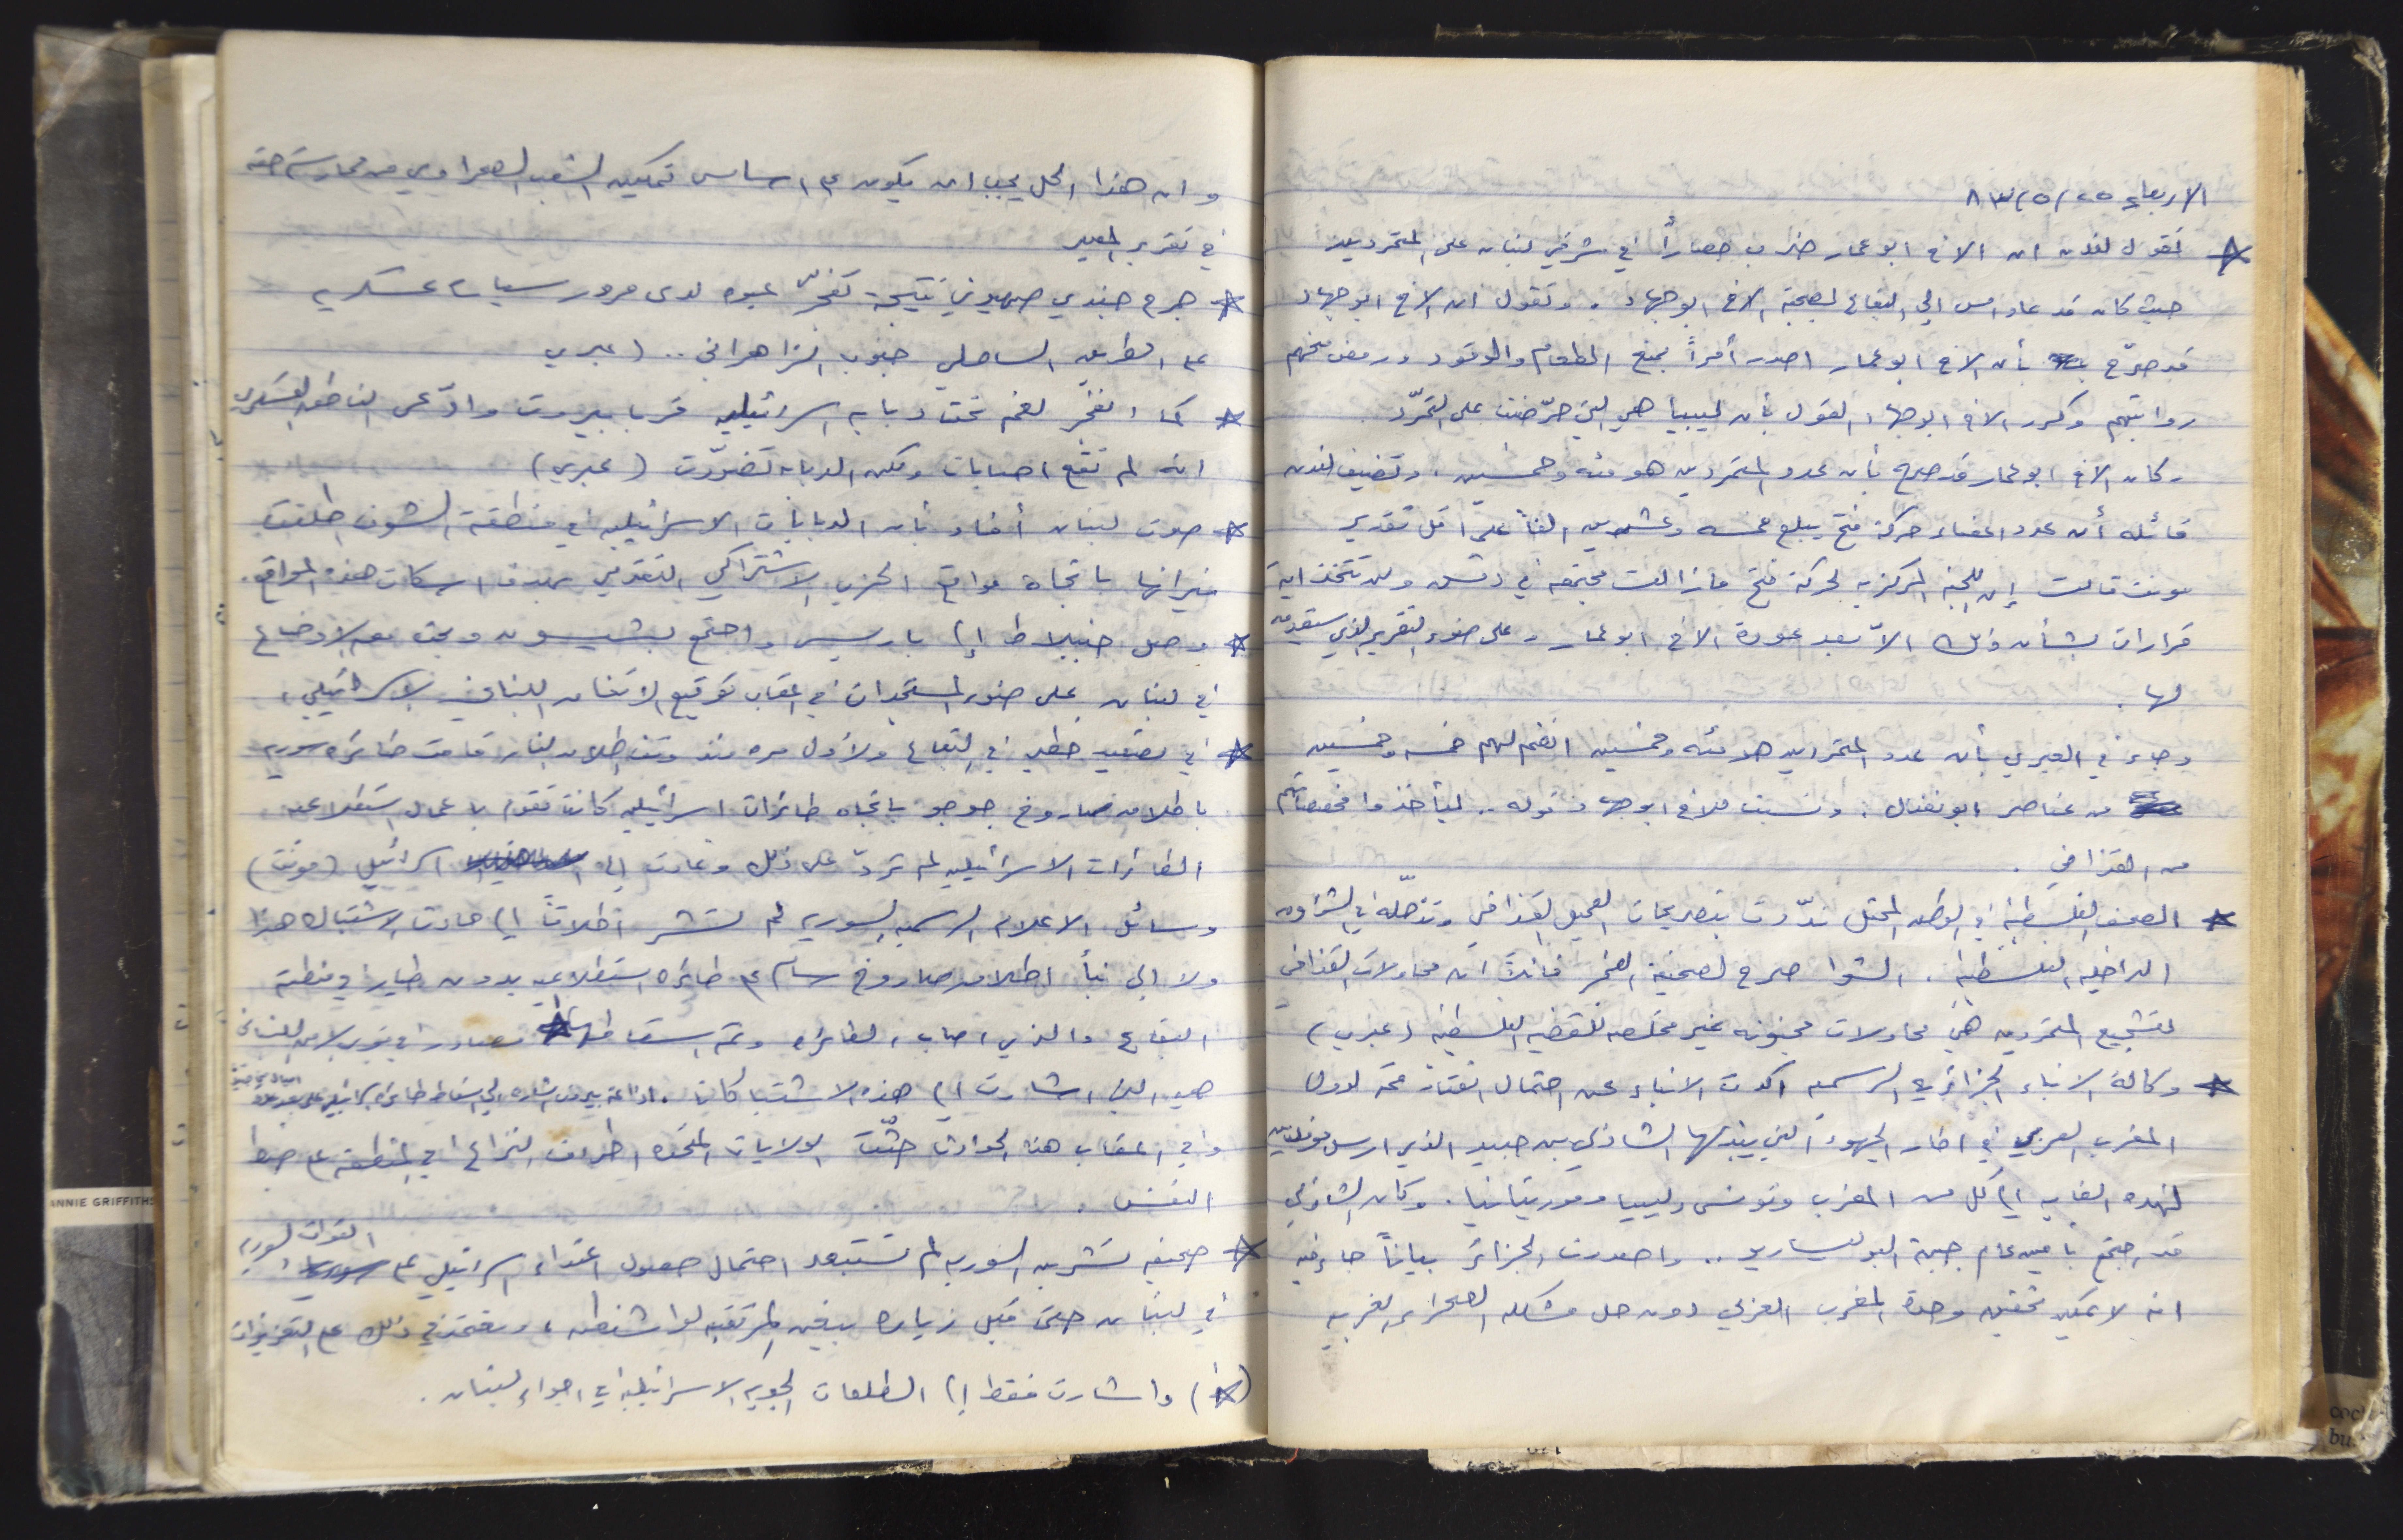 الاربعاء ٢٥/٥/٨٣
* تقول لندن ان الاخ ابو عمار ضرب حصاراً في شرقي لبنان على المتمردين
حيث كان قد عاد امس الى البقاع لصحبة الاخ ابو جهاد. وتقول ان الاخ ابو جهاد
قد صرّح بأن الاخ ابو عمار اصدر أمراً بمنع الطعام والوقود ورفض منحهم
رواتبهم وكرر الاخ ابو جهاد القول بأن ليبيا هي التي حرّضت على التمرّد.
وكان الاخ ابو عمار قد صرح بأن عدد المتمردين هو مئه وخمسين، وتضيف لندن
قائله أن عدد اعضاء حركة فتح يبلغ خمسه وعشرين الفاً على اقل تقدير
مونت قالت إن اللجنه المركزيه لحركة فتح ما زالت مجتمعه في دمشق ولن تتخذ اية
قرارات بشأن ذلك الاّ بعد عودة الاخ ابو عمار وعلى ضوء التقرير الذي سيقدمه
لها.
وجاء في العبري بأن عدد المتمردين هو مئه وخمسين انضم لهم خمسه وخمسين
من عناصر ابو نضال. ونسبت للاخ ابو جهاد قوله.. ليأخذوا مخصصاتهم
من القذافي.
* الصحف الفلسطينيه في الوطن المحتل ندّدت بتصريحات العميل القذافي وتدخّله في الشؤون
الداخليه الفلسطينيه. الشوا صرح لصحيفة الفجر قائلاً ان محاولات القذافي
لتشجيع المتمردين هي محاولات مجنونه غير مخلصه للقضيه الفلسطينيه (عبري)
* وكالة الانباء الجزائريه الرسميه اكدت الانباء عن احتمال انعقاد قمة لدول
المغرب العربي في اطار الجهود التي يبذلها الشاذلي بن جديد الذي ارسل موفدين
لهذه الغايه الى كل من المغرب وتونس وليبيا وموريتانيا. وكان الشاذلي
قد اجتمع بامين عام جبهة البوليساريو.. واصدرت الجزائر بياناً جاء فيه
انه لا يمكن تحقيق وحدة المغرب العربي دون حل مشكله الصحراء الغربيه
وان هذا الحل يجب ان يكون على اساس تمكين الشعب الصحراوي من ممارسة حقه
في تقرير المصير
* جرح جندي صهيوني نتيجة تفجّر عبوه لدى مرور سيارات عسكريه
على الطريق الساحلي جنوب الزاهراني.. (عبري
* كما انفجر لغم تحت دبابه اسرائيليه قرب بيروت وادّعى الناطق العسكري
انه لم تقع اصابات ولكن الدبابه تضرّرت (عبري)
* صوت لبنان أفاد بأن الدبابات الاسرائيليه في منطقة الشوف اطلقت
نيرانها باتجاه مواقع الحزب الاشتراكي التقدمي بهدف اسكات هذه المواقع.
* وصل جنبلاط إلى باريس واجتمع بشيسون وبحث معه الاوضاع
في لبنان على ضوء المستجدات في اعقاب توقيع الاتفاق اللبناني الاسرائيلي.
* في تصعيد خطير في البقاع ولأول مره منذ وقف اطلاق النار قامت طائره سوريه
باطلاق صاروخ جو جو باتجاه طائرات اسرائيليه كانت تقوم باعمال استطلاعيه
الطائرات الاسرائيليه لم تردّ على ذلك وعادت الى اسرائيل (مونت)
وسائل الاعلام الرسميه السوريه لم تشر اطلاقاً الى حادث الاشتباك هذا
ولا الى نبأ اطلاق صاروخ سام على طائره استطلاعيه بدون طيار في منطقة
البقاع والذي اصاب الطائره وتم اسقاطها * مصادر في قوى الامن اللبناني
هي التي اشارت الى هذه الاشتباكات. اذاعة بيروت اشارت الى اسقاط طائره اسرائيليه على بعد
وفي اعقاب هذه الحوادث حثّت الولايات المتحده اطراف النزاع في المنطقة على ضبط
النفس.
* صحيفه تشرين السوريه لم تستبعد احتمال حصول اعتداء اسرائيلي على القوات السوريه
في لبنان حتى قبل زيارة بيغن المرتقبه لواشنطن، وتعتمد في ذلك على التعزيزات
(*) واشارت فقط إلى الطلعات الجويه الاسرائيليه في اجواء لبنان.
ANNIE GRIFFITHS